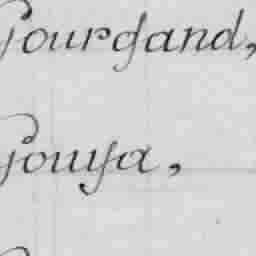 Gourgand,
Gouya,